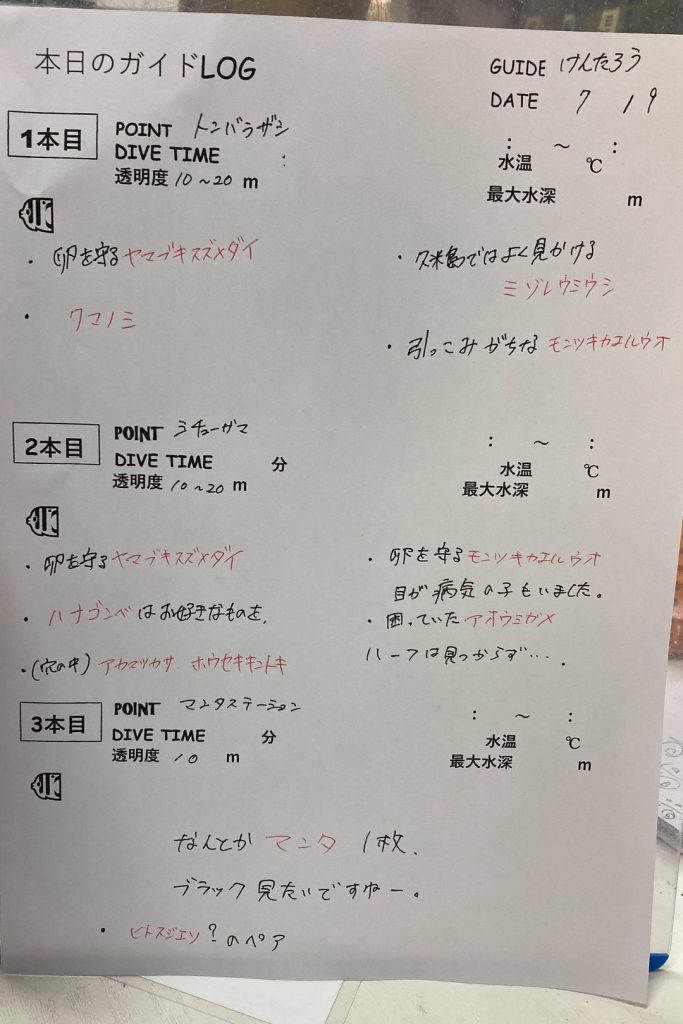 本日のガイドLOG
GUIDE けんたろう
DATE 7 / 19
1本目
POINT トンバラザシ
DIVE TIME : : ～ :
透明度 10～20 m
水温 ℃
最大水深 m
・卵を守るヤマブキスズメダイ
・クマノミ
・久米島ではよく見かける
ミゾレウミウシ
・引っこみがちなモンツキカエルウオ
2本目
POINT ミチューガマ
DIVE TIME 分 : ～ :
透明度 10～20 m
水温 ℃
最大水深 m
・卵を守るヤマブキスズメダイ
・ハナゴンベはお好きなものを,
・(穴の中) アカマツカサ、ホウセキキントキ
・卵を守るモンツキカエルウオ
目が病気の子もいました。
・困っていたアオウミガメ
ハーフは見つからず….
3本目
POINT マンタステーション
DIVE TIME 分 : ～ :
透明度 10 m
水温 ℃
最大水深 m
なんとかマンタ 1枚.
ブラック見たいですねー。
・ヒトスジエソ?のペア